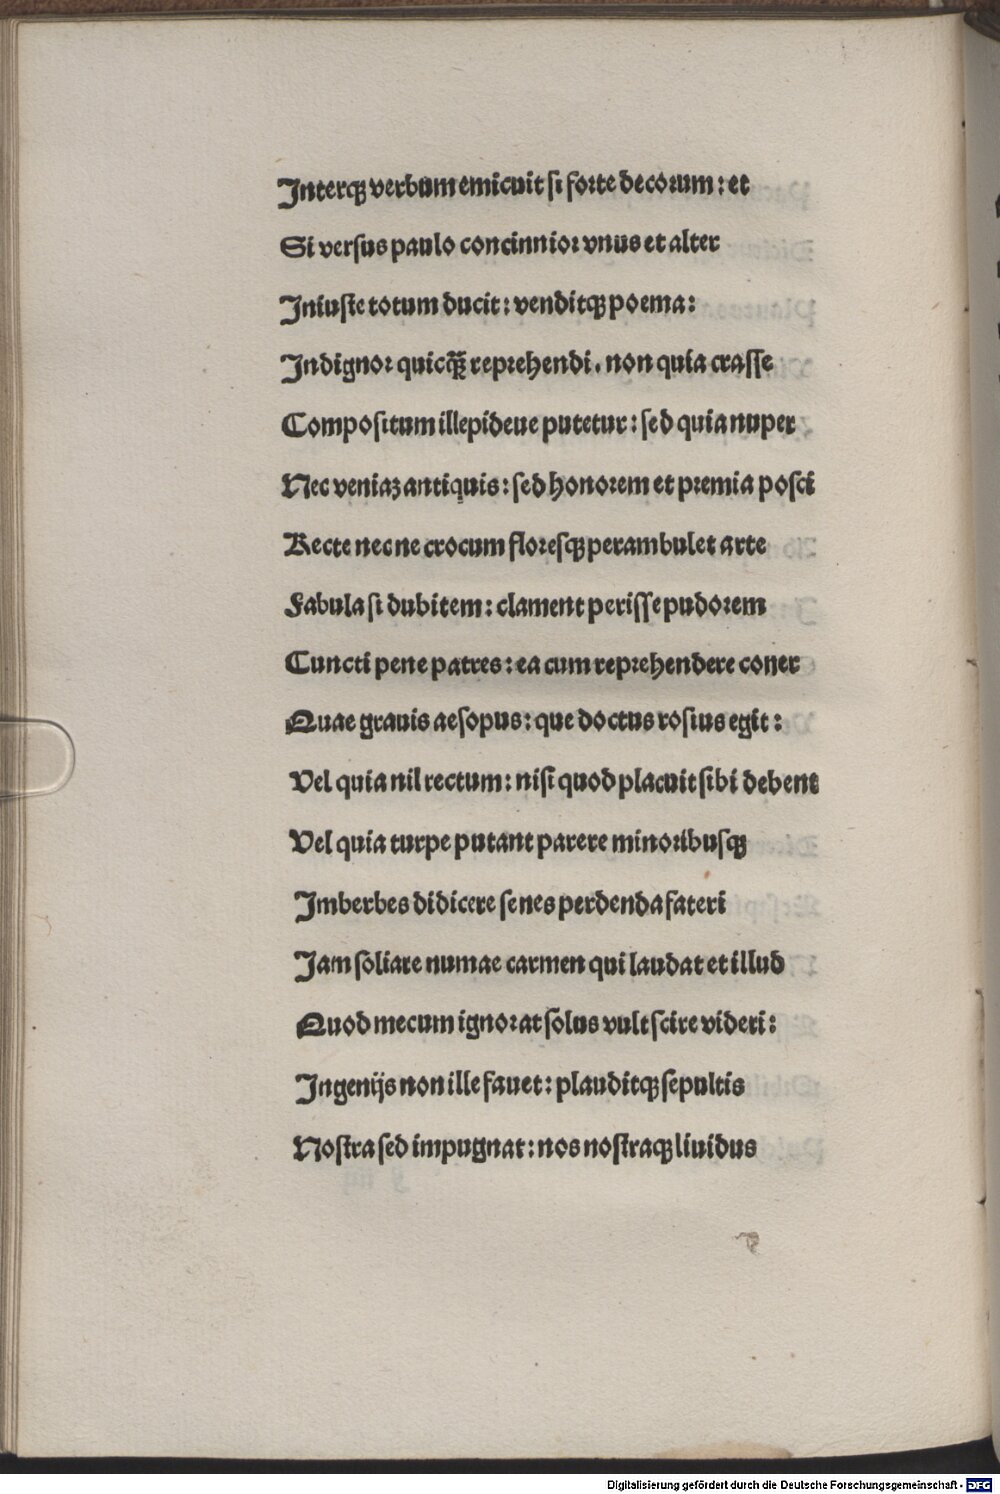 Interqꝫ verbum emicuit si forte decorum : et
Si versus paulo concinnior vnus et alter
Iniuste totum ducit : venditqꝫ poema :
Indignor quicq̄ꝫ reprehendi . non quia crasse
Compositum illepideue putetur : sed quia nuper
Nec veniaꝫ antiquis : sed honorem et premia posci
Recte nec ne crocum floresqꝫ perambulet arte
Fabula si dubitem : clament perisse pudorem
Cuncti pene patres : ea cum reprehendere coner
Quae grauis aesopus : que doctus rosius egit :
Vel quia nil rectum : nisi quod placuit sibi debent
Vel quia turpe putant parere minoribusqꝫ
Imberbes didicere senes perdenda fateri
Iam soliare numae carmen qui laudat et illud
Quod mecum ignorat solus vult scire videri :
Ingenijs non ille fauet : plauditqꝫ sepultis
Nostra sed impugnat : nos nostraqꝫ liuidus
Digitalisierung gefördert durch die Deutsche Forschungsgemeinschaft - DFG